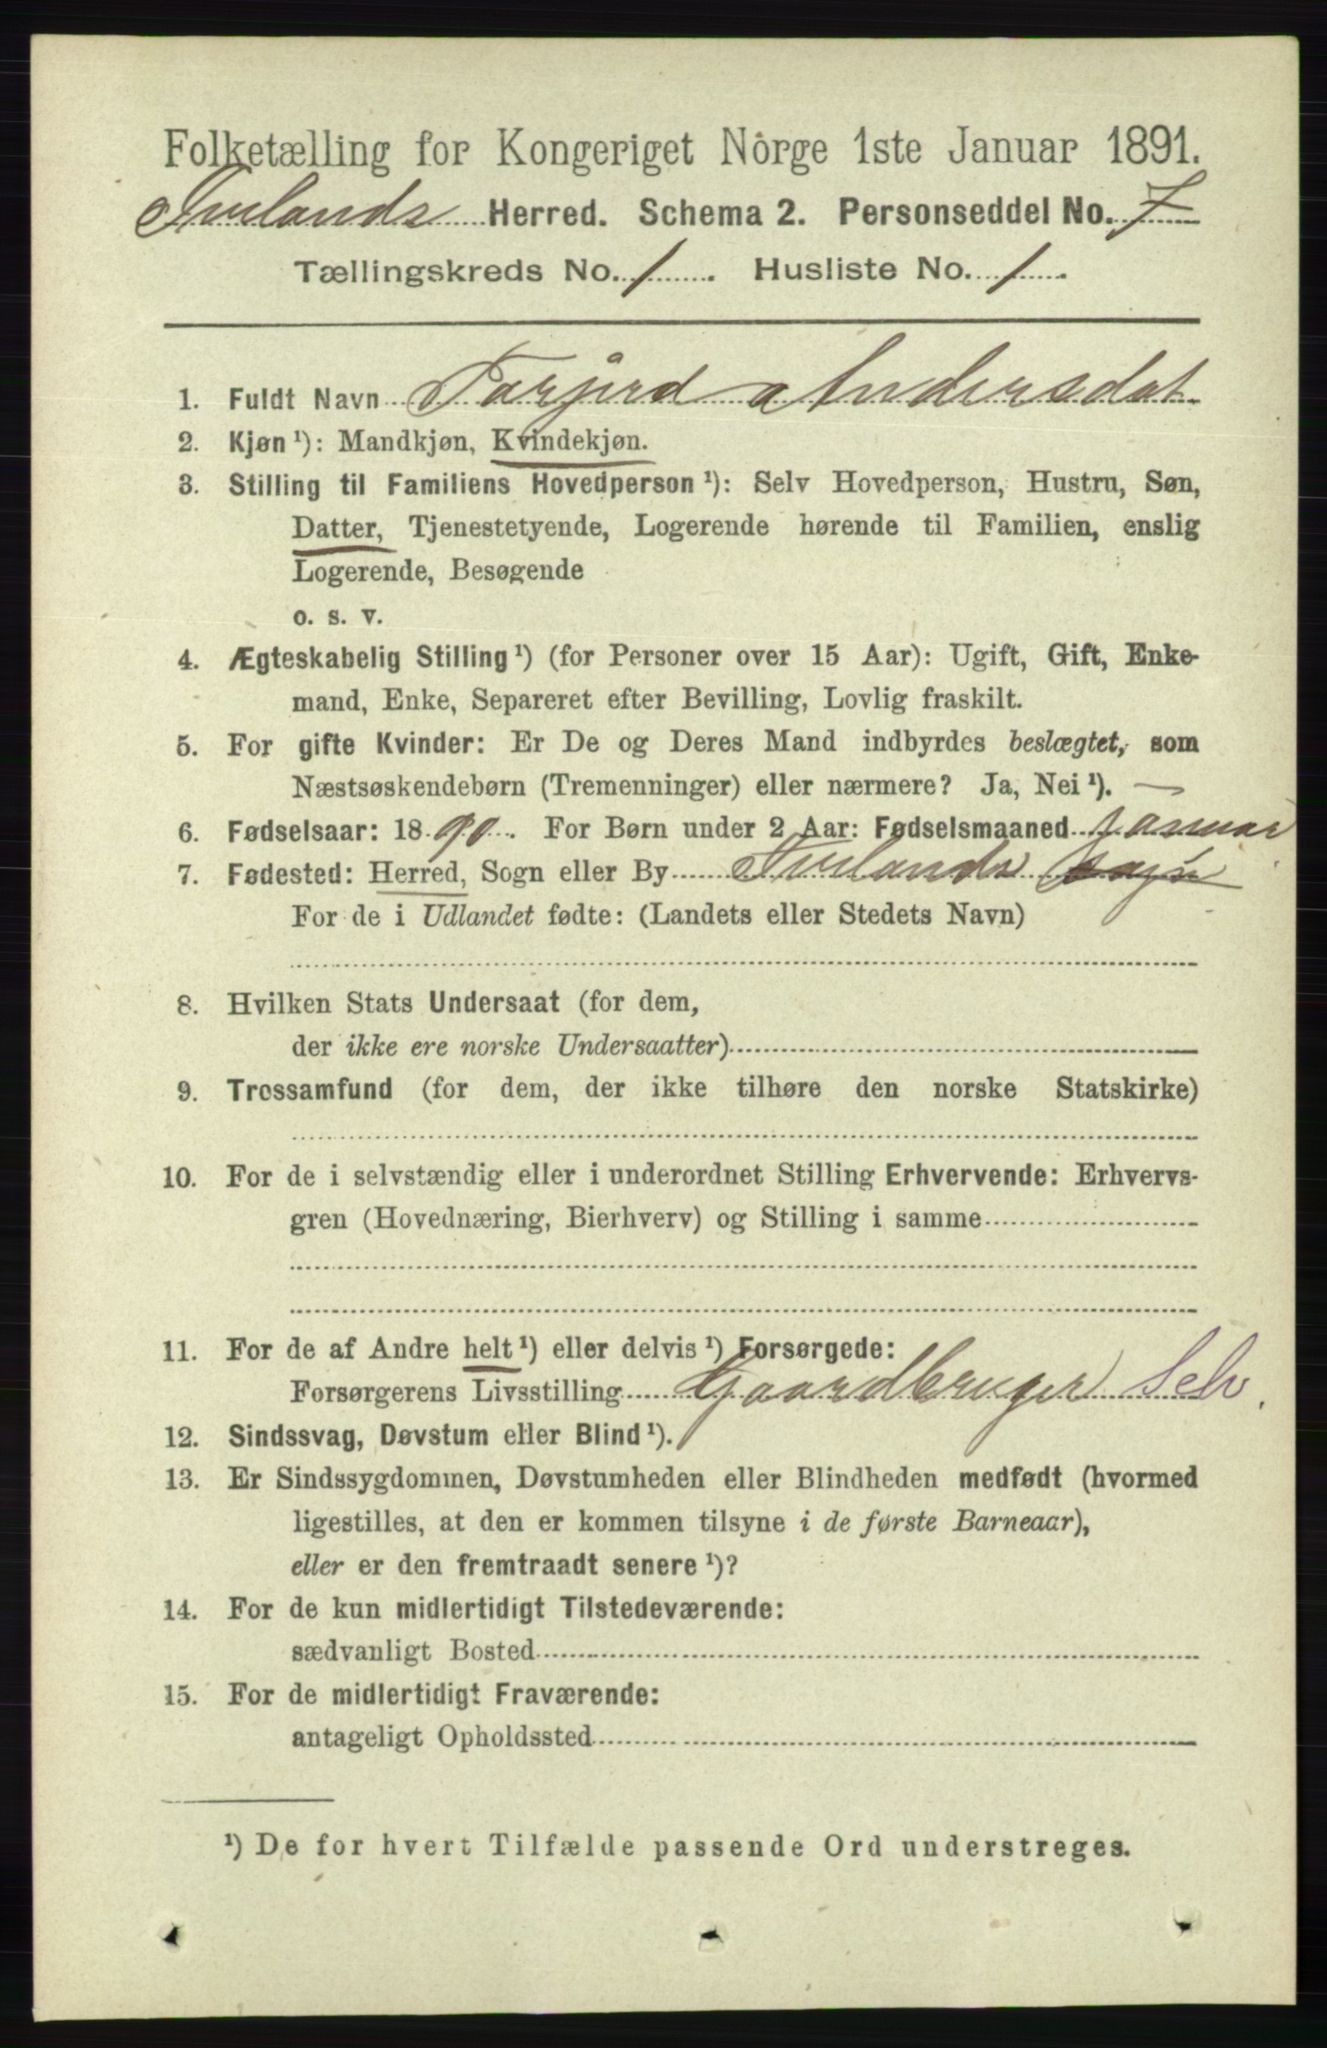 Folketælling for Kongeriget Norge 1ste Januar 1891.
Iveland's Herred. Schema 2. Personseddel No. 7
Tællingskreds No. 1. Husliste No. 1.
1. Fuldt Navn Torjerd Andersdat
2. Kjøn ¹): Mandkjøn, Kvindekjøn.
3. Stilling til Familiens Hovedperson ¹): Selv Hovedperson, Hustru, Søn,
Datter, Tjenestetyende, Logerende hørende til Familien, enslig
Logerende, Besøgende
o. s. v.
4. Ægteskabelig Stilling ¹) (for Personer over 15 Aar): Ugift, Gift, Enke-
mand, Enke, Separeret efter Bevilling, Lovlig fraskilt.
5. For gifte Kvinder: Er De og Deres Mand indbyrdes beslægtet, som
Næstsøskendebørn (Tremenninger) eller nærmere? Ja, Nei ¹). —
6. Fødselsaar: 1890. For Børn under 2 Aar: Fødselsmaaned Januar
7. Fødested: Herred, Sogn eller By Ivelands sogn
For de i Udlandet fødte: (Landets eller Stedets Navn)
8. Hvilken Stats Undersaat (for dem,
der ikke ere norske Undersaatter)
9. Trossamfund (for dem, der ikke tilhøre den norske Statskirke)
10. For de i selvstændig eller i underordnet Stilling Erhvervende: Erhvervs-
gren (Hovednæring, Bierhverv) og Stilling i samme
11. For de af Andre helt ¹) eller delvis ¹) Forsørgede:
Forsørgerens Livsstilling Gaardbruger Selv.
12. Sindssvag, Døvstum eller Blind ¹).
13. Er Sindssygdommen, Døvstumheden eller Blindheden medfødt (hvormed
ligestilles, at den er kommen tilsyne i de første Barneaar),
eller er den fremtraadt senere ¹)?
14. For de kun midlertidigt Tilstedeværende:
sædvanligt Bosted
15. For de midlertidigt Fraværende:
antageligt Opholdssted
¹) De for hvert Tilfælde passende Ord understreges.